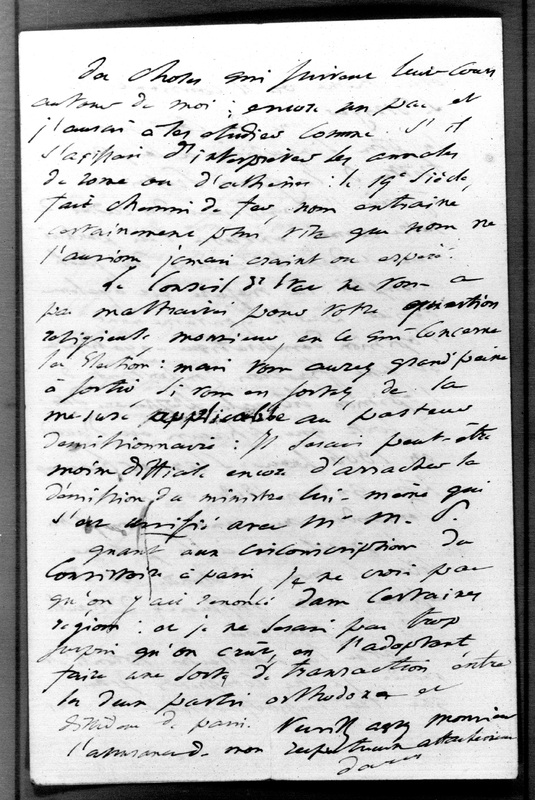 des choses qui suivent leur cours
autour de moi ; encore un peu et
j'aurai à les étudier comme s'il
s'agissait d'interpréter les annales
de rome ou d'athènes : le 19e siècle,
fait chemin de fer, nous entraine
certainement plus vite que nous ne
l'aurions jamais craint ou espéré.
Le Conseil d'Etat ne vous a
pas maltraité pour votre question
religieuse monsieur, en ce qui concerne
les Election : mais vous aurez grand peine
à sortir si vous en sortez de la
mesure applicable au pasteur
démissionnaire : Il serait peut-être
moins difficile encore d'arracher la
démission du ministre lui-même qui
s'est avec Mr M. P.
quant aux circonscription du
Consistoire à paris Je ne crois pas
qu'on y ait renoncé dans certaines
régions : et je ne serais pas trop
surpris qu'on crut, en l'adoptant
faire une sorte de transaction entre
les deux partis orthodoxe et
de paris. Veuillez agréer monsieur
l'assurance de mon respectueux attachement